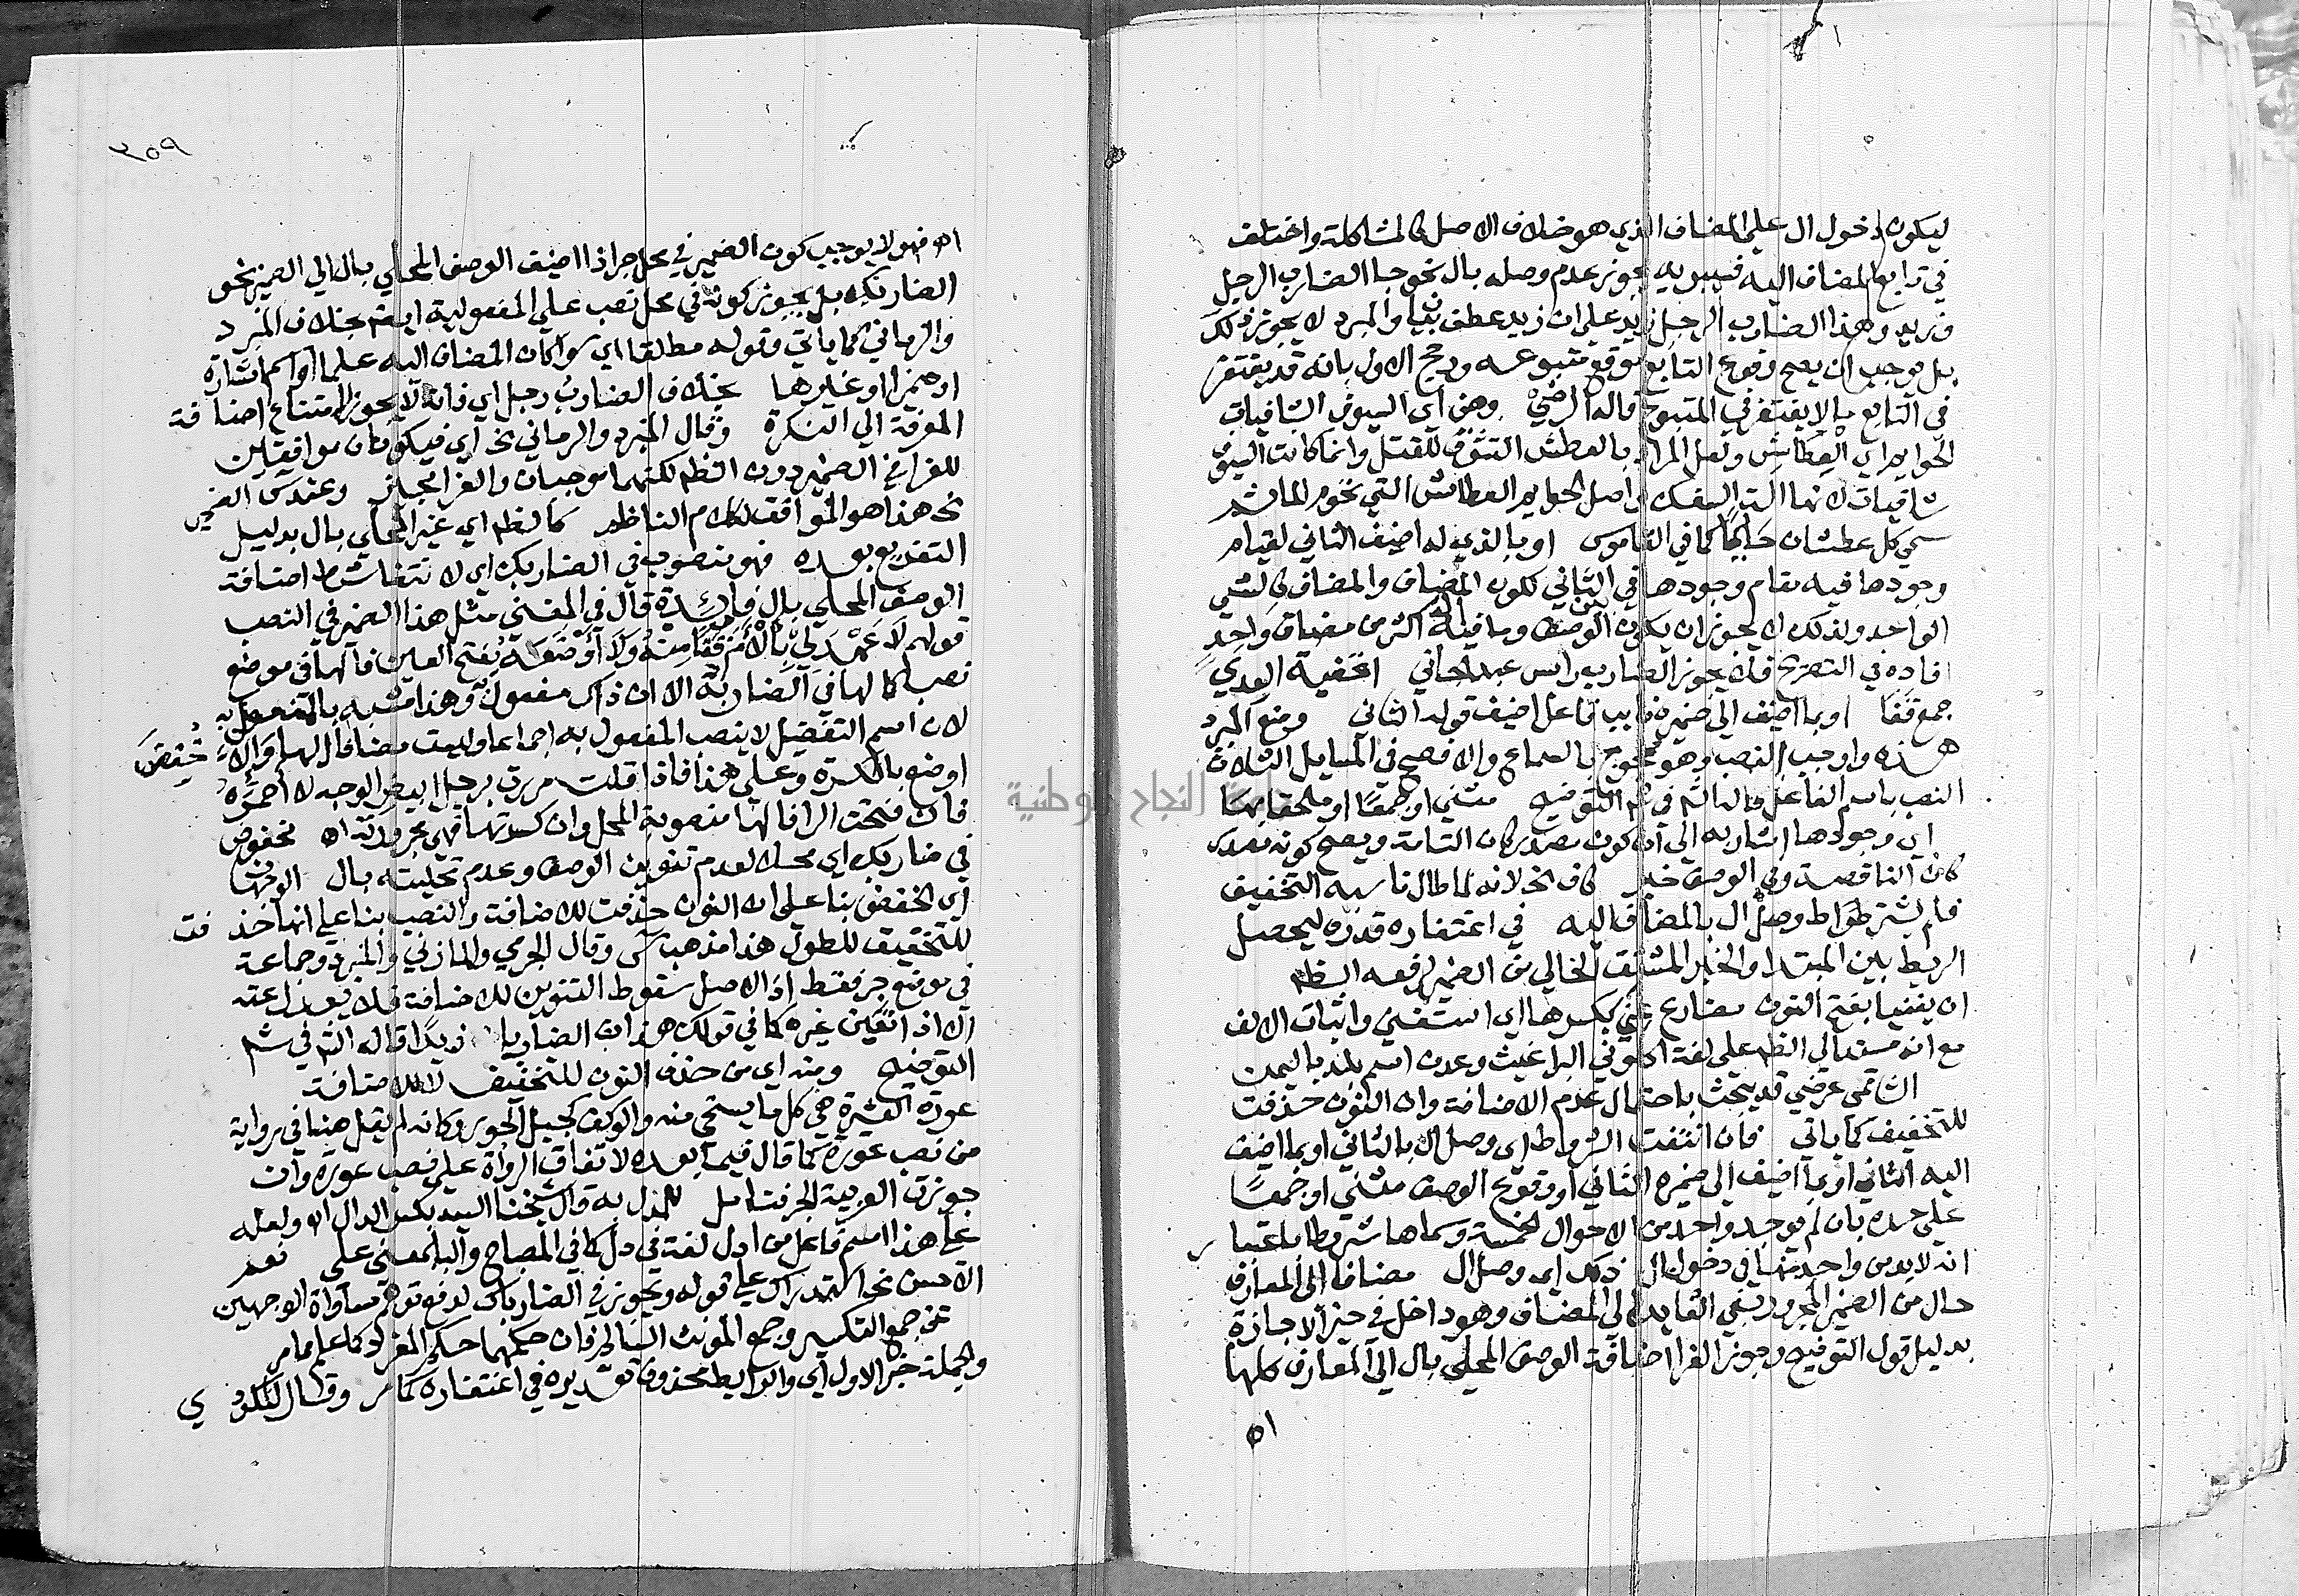 ليكون دخول ال على المضاف الذي هو خلاف الاصل كالمشاكلة واختلف
في توابع المضاف اليه فسيبويه يجوز عدم وصله بال نحو جا الضارب الرجل
وزيد وهذا الضارب الرجل زيد على ان زيد عطف بيان والمبرد لا يجوز ذلك
بل يوجب ان يصح وقوع التابع موقع متبوعه ورجح الاول بانه قد يغتفر
في التابع ما لا يغتفر في المتبوع قاله الرضي وهن اي السيوف الشافيات
الحوايم اي العطاش ولعل المراد بالعطش التشوق للقتل وانما كانت السيوف
شافيات لانها آلة السفك واصل الحوايم العطاش التي تحوم الماء ثم
سمي كل عطشان حايما كما في القاموس او بالذي له اضيف الثاني لقيام
وجودها فيه مقام وجودها في الثاني لكون المضاف والمضاف كالشي
الواحد ولذلك لا يجوز ان يكون بين الوصف وما فيه ال اكثر من مضاف واحد
افاده في التصريح فلا يجوز الضارب راس عبد الجاني اقفية العدي
جمع قفا او بما اضيف الى ضميره نايب فاعل اضيف قوله الثاني ومنع المبرد
هذه واوجب النصب وهو محجوج بالسماع والافصح في المسايل الثلاث
النصب باسم الفاعل قاله الشم في شم التوضيح مثنى او جمعا او ملحقا بهما
اي وجودها اشار به الى ان كون مصدر كان التامة ويصح كونه مصدر
كان الناقصة وفي الوصف خبر كاف الخ لانه لما طال ناسبه التخفيف
فلم يشترطوا وصل ال بالمضاف اليه في اغتفاره قدره ليحصل
الربط بين المبتدا والخبر المشتق الخالي من الضمير لرفعه الظم
ان يغنيا بفتح النون مضارع غني بكسرها اي استغنى واثبات الالف
مع انه مسند الى الظم على لغة اكلوني البراغيث وعدن اسم بلد باليمن
الشاتمي عرضي قد يبحث باحتمال عدم الاضافة وان النون حذفت
للتخفيف كما ياتي فان انتفت الشروط اي وصل ال بالثاني او بما اضيف
اليه الثاني او بما اضيف الى ضميره الثاني او وقوع الوصف مثنى او جمعا
على حده بان لم يوجد واحد من الاحوال الخمسة وسماها شروطا باعتبار
انه لا بد من واحد منها في دخول ال ذكر اي وصل ال مضافا الى المعارف
حال من الضمير المجرور بفي العايد الى المضاف وهو داخل في حيز الاجازة
بدليل قول التوضيح وجوز الفرا اضافة الوصف المحلى بال الى المعارف كلها
اه
٣٥٩
اه فهو لا يوجب كون الضمير في محل جر اذا اضيف الوصف المحلى بال الى الضمير نحو
الضاربك بل يجوز كونه في محل نصب على المفعولية ايضم بخلاف المبرد
والرماني كما ياتي وقوله مطلقا اي سوا كان المضاف اليه علما او اسم اشارة
او ضميرا او غيرها بخلاف الضارب رجل اي فانه لا يجوز لامتناع اضافة
المعرفة الى النكرة وقال المبرد والرماني الخ اي فيكونان موافقين
للفرا في الضمير دون الظم لكنهما موجبان والفرا مجيز وعند س الضمير
الخ هذا هو الموافق لكلام الناظم كالظم اي غير المحلى بال بدليل
التفريع بعده فهو منصوب في الضاربك اي لانتفا شرط اضافة
الوصف المحلى بال فايدة قال في المغني مثل هذا الضمير في النصب
قولهم لا عهد لي بالأم قفا منه ولا أوضعه بفتح العين فالها في موضع
نصب كالها في الضاربه الا ان ذاك مفعول وهذا مشبه بالمفعول به
لان اسم التفضيل لا ينصب المفعول به اجماعا وليست مضافا اليها والا خفض
اوضع بالكسرة وعلى هذا فاذا قلت مررت برجل ابيض الوجه لا احمره
فان فتحت الرا فالها منصوبة المحل وان كسرتها فهي مجرورته اه مخفوض
في ضاربك اي محله لعدم تنوين الوصف وعدم تحليته بال الوجهان
اي الخفض بنا على ان النون حذفت للاضافة والنصب بنا على انها حذفت
للتخفيف للطول هذا مذهب س وقال الجرمي والمازني والمبرد وجماعة
في موضع جر فقط اذ الاصل سقوط التنوين للاضافة فلا يعدل عنه
الا اذا تعين غيره كما في قولك هذان الضاربا زيدا قاله الشم في شم
التوضيح ومنه اي من حذف النون للتخفيف لا للاضافة
عورة العشيرة هي كل ما يستحى منه والوكف كجبل الجور وكانه لم يقل هنا في رواية
من نصب عورة كما قال فيما بعده لاتفاق الرواة على نصب عورة وان
جوزت العربية الجر فتامل للمذل به قال شيخنا السيد بكسر الدال اه ولعله
على هذا اسم فاعل من ادل لغة في دل كما في المصباح والبا بمعنى على نعم
الاحسن الخ استدراك على قوله ويجوز في الضارباك لدفع توهم مساواة الوجهين
عن جمع التكسير وجمع المونث السالم فان حكمهما حكم المفرد كما علم مما مر
والجملة خبر الاول اي والرابط محذوف تقديره في اغتفاره كما مر وقال